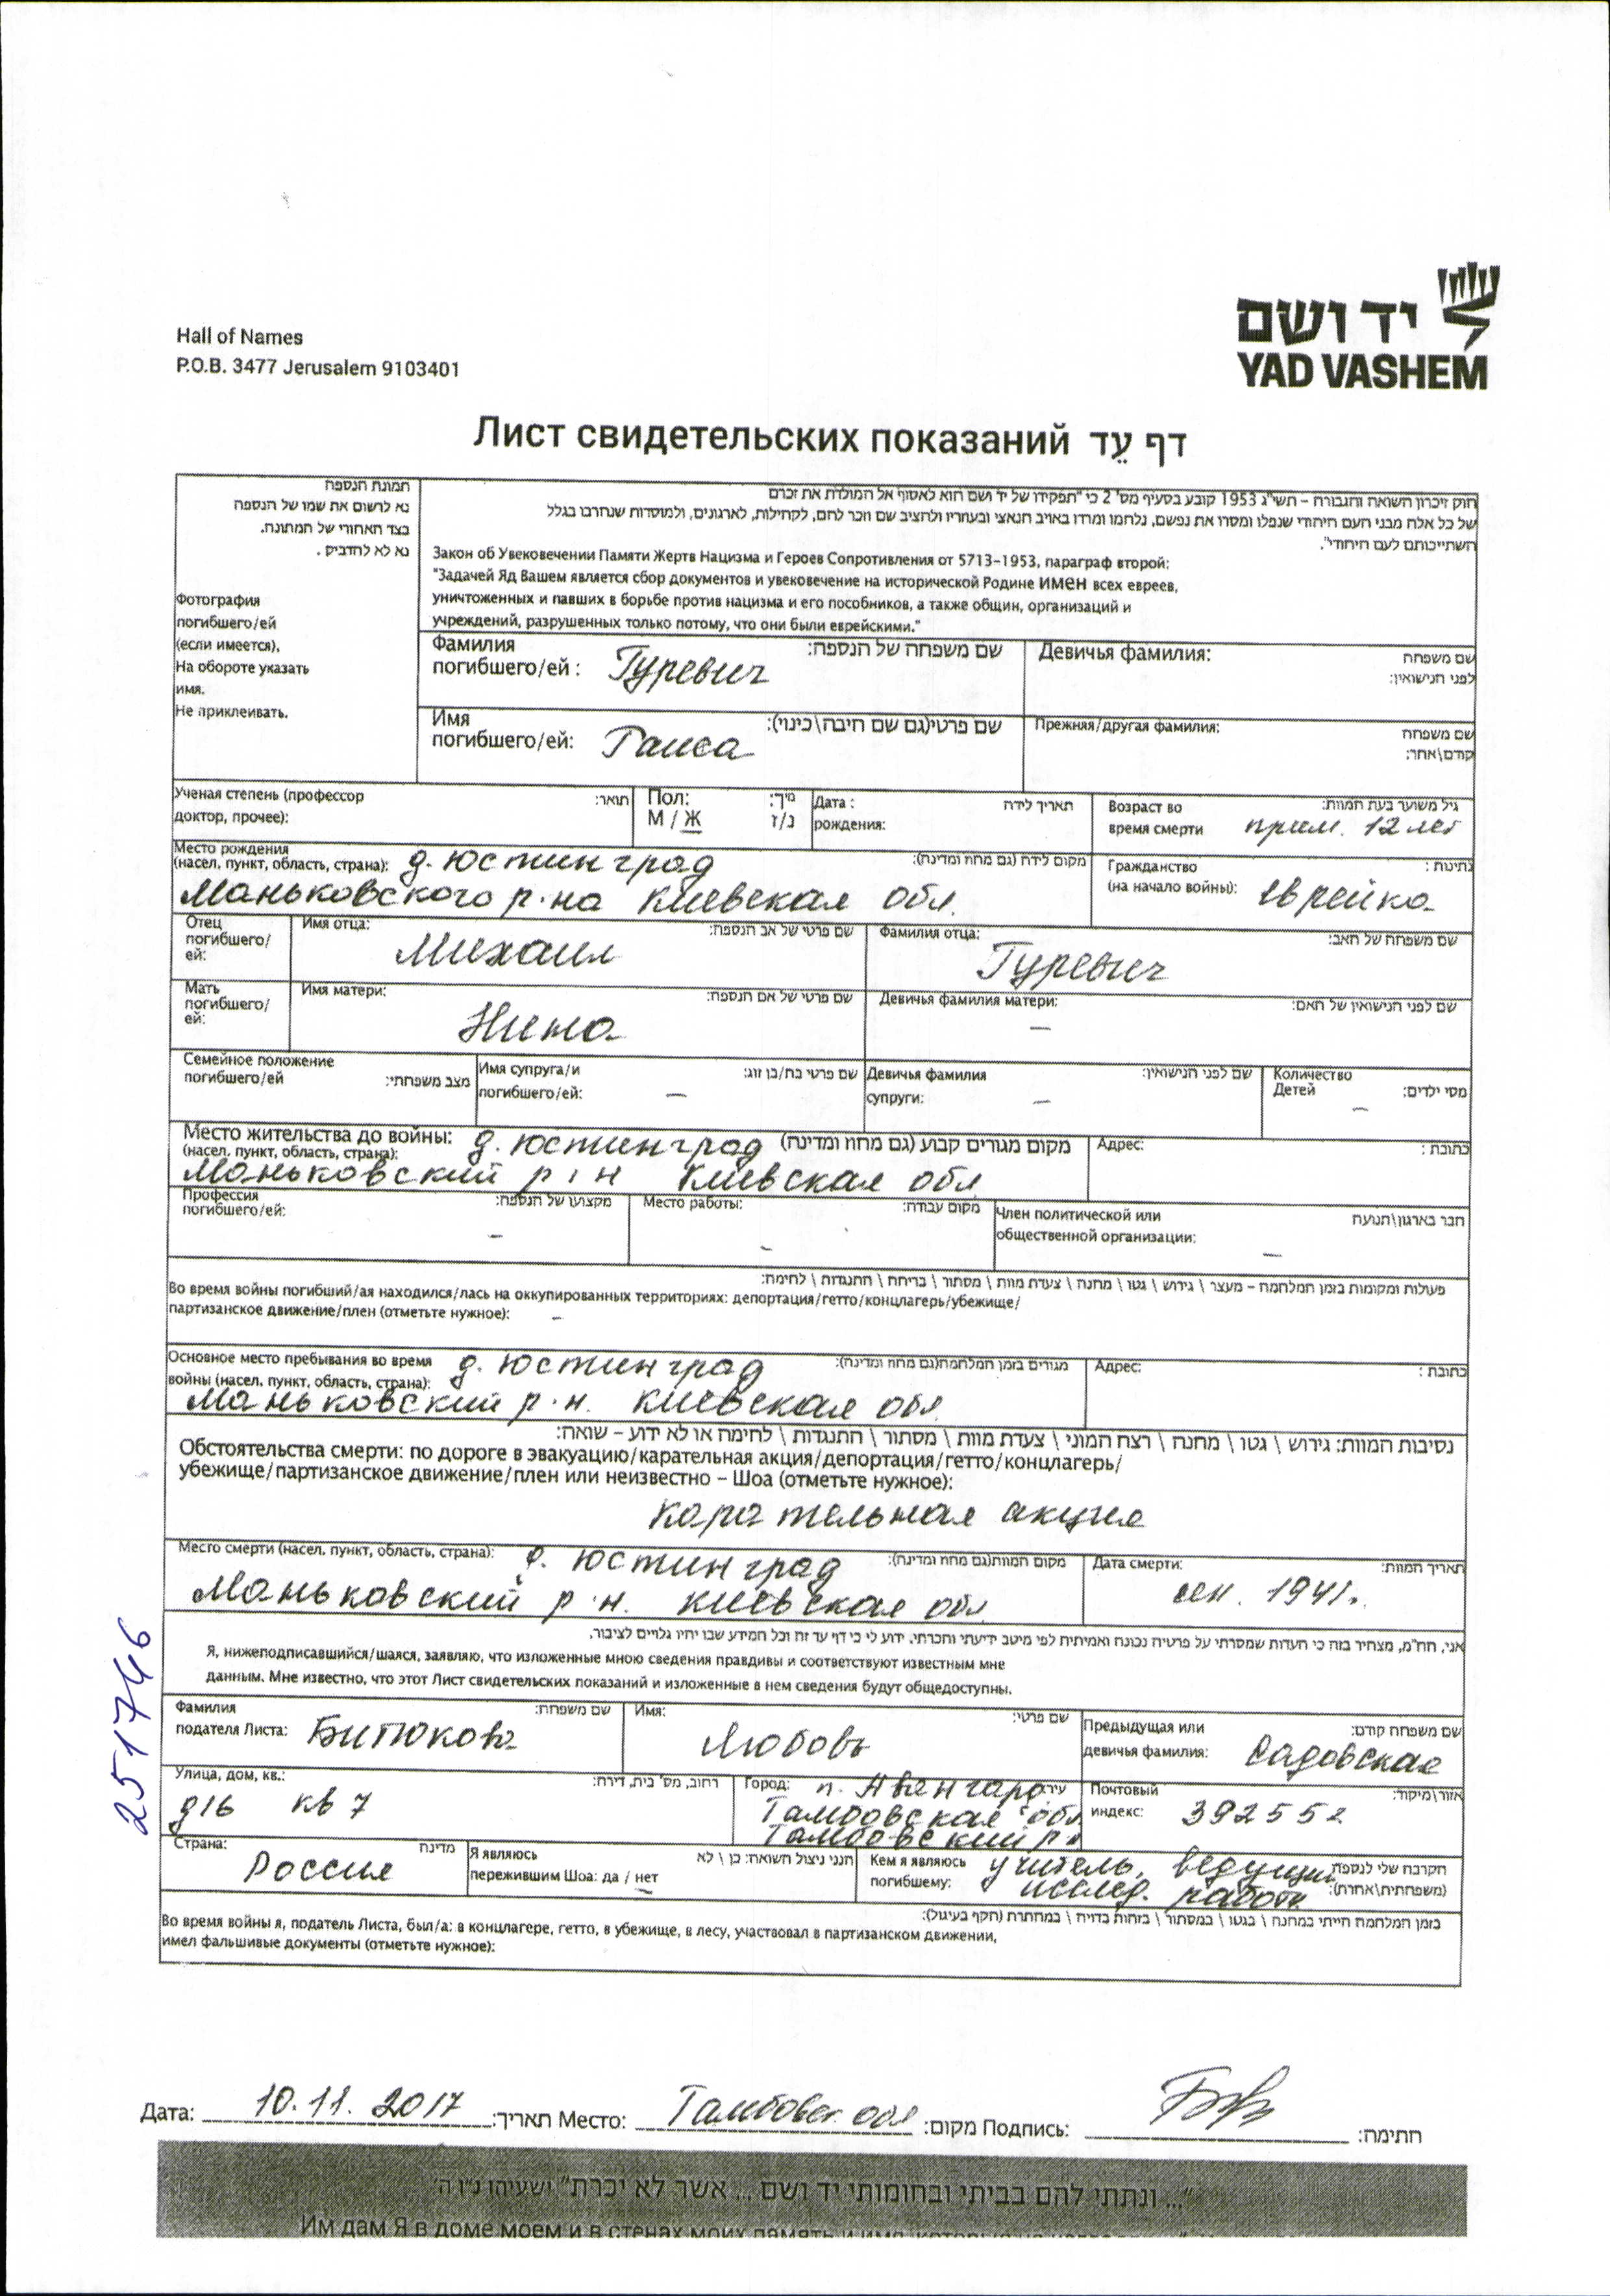 יד ושם
YAD VASHEM
Hall of Names
P.O.B. 3477 Jerusalem 9103401
Лист свидетельских показаний דף עֵד
תמונת הנספה
נא לרשום את שמו של הנספה
בצד האחורי של התמונה.
נא לא להדביק.
Фотография
погибшего/ей
(если имеется).
На обороте указать
имя.
Не приклеивать.
חוק זיכרון השואה והגבורה – תשי"ג 1953 קובע בסעיף מס' 2 כי "תפקידו של יד ושם הוא לאסוף אל המולדת את זכרם
של כל אלה מבני העם היהודי שנפלו ומסרו את נפשם, נלחמו ומרדו באויב הנאצי ובעוזריו ולהציב שם וזכר להם, לקהילות, לארגונים, ולמוסדות שנחרבו בגלל
השתייכותם לעם היהודי".
Закон об Увековечении Памяти Жертв Нацизма и Героев Сопротивления от 5713–1953, параграф второй:
"Задачей Яд Вашем является сбор документов и увековечение на исторической Родине имен всех евреев,
уничтоженных и павших в борьбе против нацизма и его пособников, а также общин, организаций и
учреждений, разрушенных только потому, что они были еврейскими."
Фамилия погибшего/ей : Гуревич שם משפחה של הנספה:
Девичья фамилия: שם משפחה לפני הנישואין:
Имя погибшего/ей: Раиса שם פרטי(גם שם חיבה\כינוי):
Прежняя/другая фамилия: שם משפחה קודם\אחר:
Ученая степень (профессор доктор, прочее): תואר:
Пол: М / Ж מין: ז/נ
Дата рождения: תאריך לידה
Возраст во время смерти прим. 12 лет גיל משוער בעת המוות:
Место рождения (насел. пункт, область, страна): д. Юстинград מקום לידה (גם מחוז ומדינה):
Маньковского р-на Киевская обл.
Гражданство (на начало войны): еврейка נתינות :
Отец погибшего/ей:
Имя отца: Михаил שם פרטי של אב הנספה:
Фамилия отца: Гуревич שם משפחה של האב:
Мать погибшего/ей:
Имя матери: Нина שם פרטי של אם הנספה:
Девичья фамилия матери: – שם לפני הנישואין של האם:
Семейное положение погибшего/ей מצב משפחתי:
Имя супруга/и погибшего/ей: – שם פרטי בת/בן זוג:
Девичья фамилия супруги: – שם לפני הנישואין:
Количество Детей – מס' ילדים:
Место жительства до войны: д. Юстинград מקום מגורים קבוע (גם מחוז ומדינה)
(насел. пункт, область, страна):
Маньковский р-н Киевская обл
Адрес: כתובת :
Профессия погибшего/ей: – מקצועו של הנספה:
Место работы: – מקום עבודה:
Член политической или общественной организации: – חבר בארגון\תנועה
פעולות ומקומות בזמן המלחמה – מעצר \ גירוש \ גטו \ מחנה \ צעדת מוות \ מסתור \ בריחה \ התנגדות \ לחימה:
Во время войны погибший/ая находился/лась на оккупированных территориях: депортация/гетто/концлагерь/убежище/
партизанское движение/плен (отметьте нужное): –
Основное место пребывания во время д. Юстинград מגורים בזמן המלחמה(גם מחוז ומדינה):
войны (насел. пункт, область, страна):
Маньковский р-н. Киевская обл.
Адрес: כתובת :
נסיבות המוות: גירוש \ גטו \ מחנה \ רצח המוני \ צעדת מוות \ מסתור \ התנגדות \ לחימה או לא ידוע – שואה:
Обстоятельства смерти: по дороге в эвакуацию/карательная акция/депортация/гетто/концлагерь/
убежище/партизанское движение/плен или неизвестно – Шоа (отметьте нужное):
карательная акция
Место смерти (насел. пункт, область, страна): д. Юстинград מקום המוות(גם מחוז ומדינה):
Маньковский р-н. Киевская обл
Дата смерти: сен. 1941г. תאריך המוות:
אני, הח"מ, מצהיר בזה כי העדות שמסרתי על פרטיה נכונה ואמיתית לפי מיטב ידיעתי והכרתי. ידוע לי כי דף עד זה וכל המידע שבו יהיו גלויים לציבור.
Я, нижеподписавшийся/шаяся, заявляю, что изложенные мною сведения правдивы и соответствуют известным мне
данным. Мне известно, что этот Лист свидетельских показаний и изложенные в нем сведения будут общедоступны.
Фамилия подателя Листа: Битюкова שם משפחה:
Имя: Любовь שם פרטי:
Предыдущая или девичья фамилия: Садовская שם משפחה קודם:
Улица, дом, кв.: רחוב, מס' בית, דירה:
д16 кв 7
Город: п. Авангард עיר:
Тамбовская обл
Тамбовский р-н
Почтовый индекс: 392552 אזור\מיקוד:
Страна: Россия מדינה
Я являюсь пережившим Шоа: да / нет הנני ניצול השואה: כן \ לא
Кем я являюсь погибшему: учитель, ведущий исслед. работу הקרבה שלי לנספה (משפחתית\אחרת):
בזמן המלחמה הייתי במחנה \ בגטו \ במסתור \ בזהות בדויה \ במחתרת (הקף בעיגול):
Во время войны я, податель Листа, был/а: в концлагере, гетто, в убежище, в лесу, участвовал в партизанском движении,
имел фальшивые документы (отметьте нужное):
251746
Дата: 10.11.2017 תאריך: Место: Тамбовск. обл מקום: Подпись: חתימה:
"... ונתתי להם בביתי ובחומותי יד ושם ... אשר לא יכרת" ישעיהו נ"ו ה'
Им дам Я в доме моем и в стенах моих память и имя, которые не